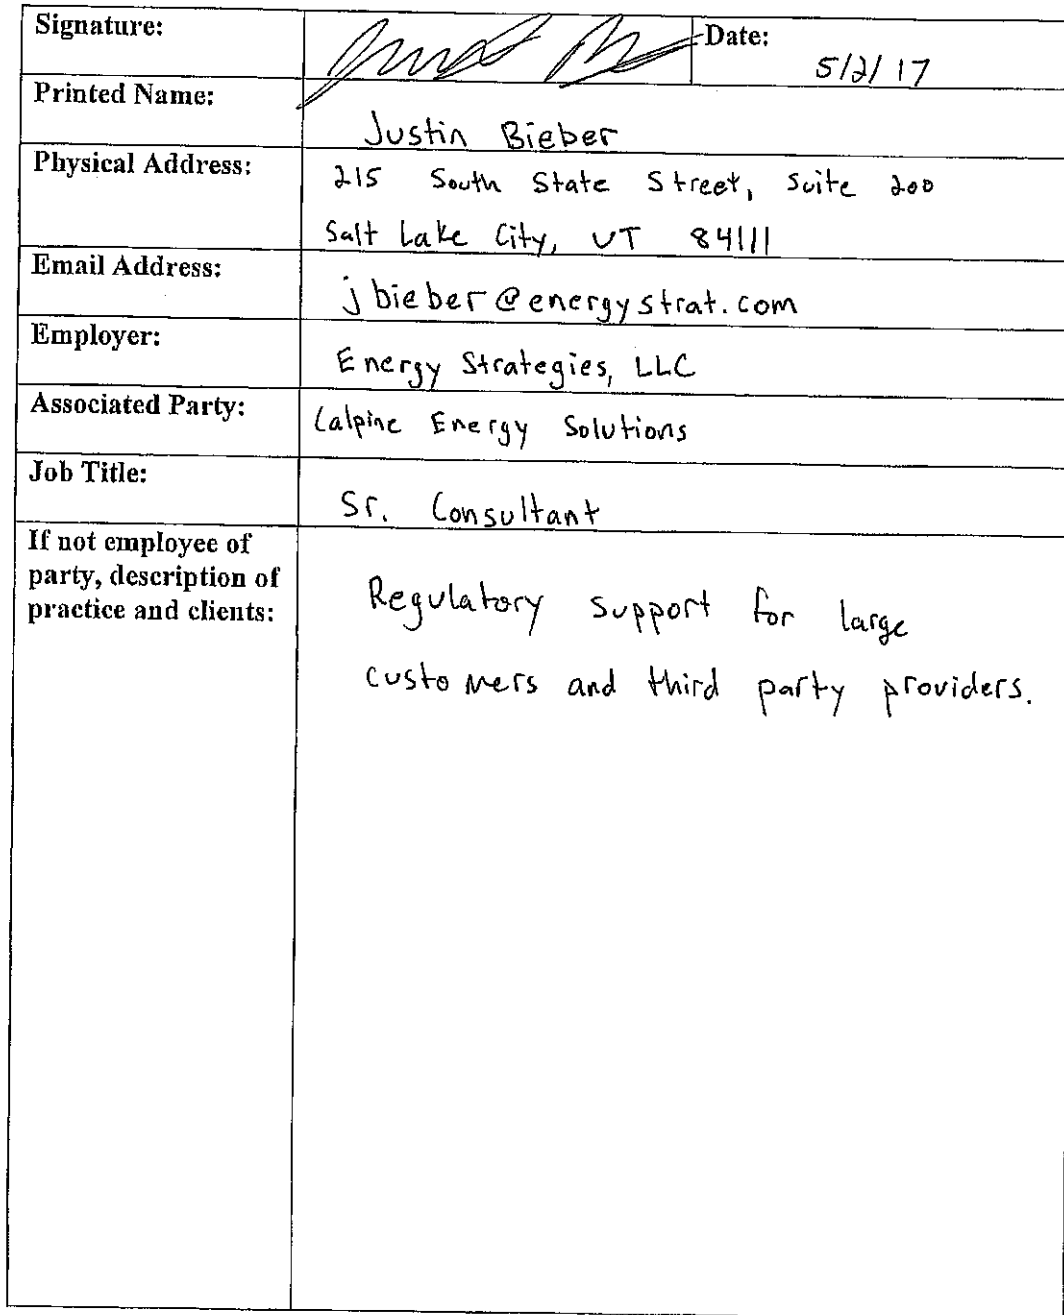 Signature: Date:
5/2/17
Printed Name:
Justin Bieber
Physical Address:
215 South State Street, Suite 200
Salt Lake City, UT 84111
Email Address:
jbieber@energystrat.com
Employer:
Energy Strategies, LLC
Associated Party:
Calpine Energy Solutions
Job Title:
Sr. Consultant
If not employee of
party, description of
practice and clients:
Regulatory support for large
customers and third party providers.